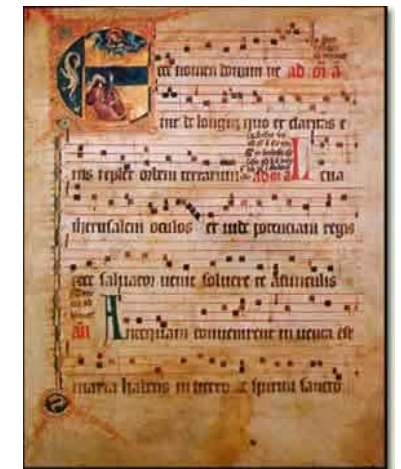 cce nomen domini ue ad oi a
nit de longinquo et claritas e
ius replet orbem terrarum ad oi a L eua
iherusalem oculos et uide potenciam regis
ecce saluator uenit soluere te a uinculis
an A ntequam conuenirent inuenta est
maria habens in utero de spiritu sancto